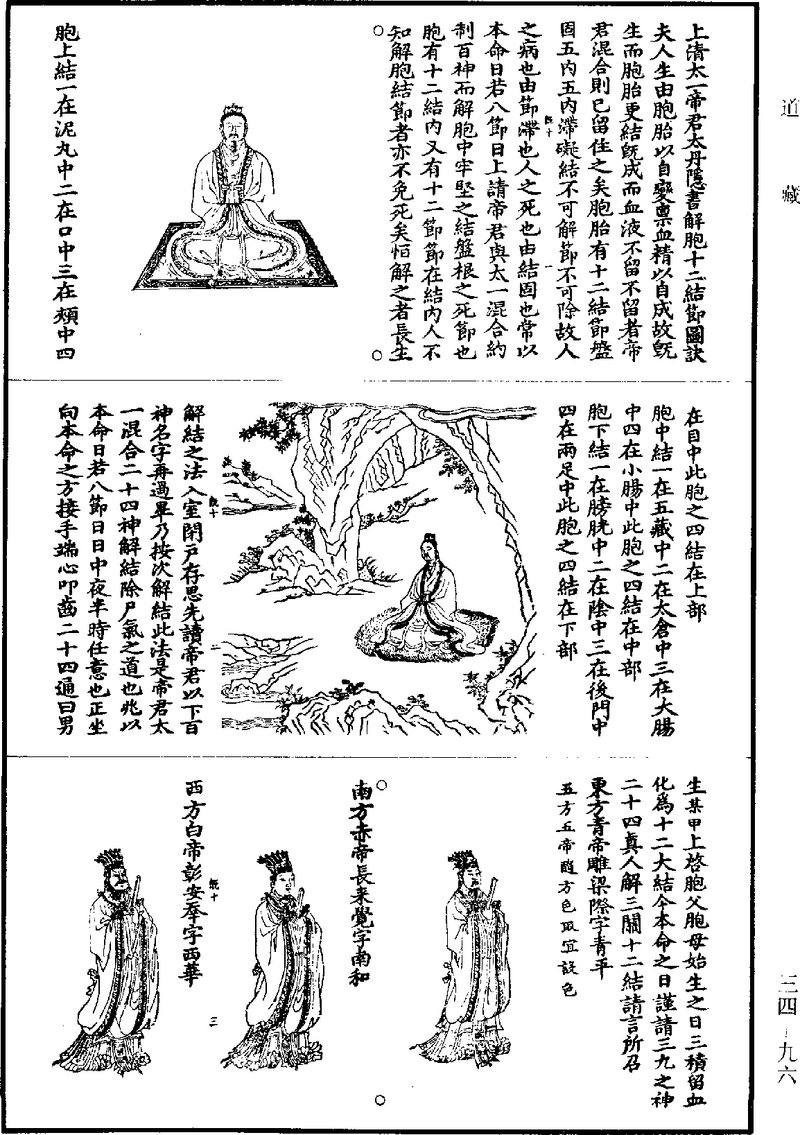 道藏
上清太一帝君太丹隱書解胞十二結節圖訣
夫人生由胞胎以自變稟血精以自成故旣
生而胞胎更結旣成而血液不留不留者帝
君混合則已留住之矣胞胎有十二結節盤
固五内五内滯礙結不可解節不可除故人
之病也由節滯也人之死也由結固也常以
本命日若八節日上請帝君與太一混合約
制百神而解胞中牢堅之結盤根之死節也
胞有十二結内又有十二節節在結内人不
知解胞結節者亦不免死矣恒解之者長生
胞上結一在泥丸中二在口中三在頰中四
在目中此胞之四結在上部
胞中結一在五藏中二在太倉中三在大腸
中四在小腸中此胞之四結在中部
胞下結一在膀胱中二在陰中三在後門中
四在兩足中此胞之四結在下部
解結之法入室閉戶存思先讀帝君以下百
神名字再過畢乃按次解結此法是帝君太
一混合二十四神解結除尸氣之道也兆以
本命日若八節日日中夜半時任意也正坐
向本命之方接手端心叩齒二十四通曰男
生某甲上啓胞父胞母始生之日三積留血
化爲十二大結今本命之日謹請三九之神
二十四真人解三關十二結請言所召
東方青帝雕梁際字青平
五方五帝隨方色取宜設色
南方赤帝長來覺字南和
西方白帝彰安𢍰字西華
三四—九六